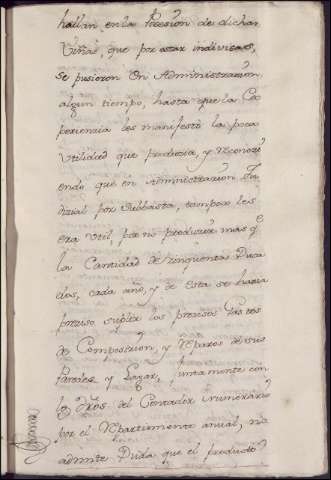 hallan en la Posesion de dichas
Viñas, que por estar indivisas,
se pusieron en Administracion
algun tiempo, hasta que la Ex
periencia les manifestó la poca
utilidad que producia, y reconoci
endo que en Administracion Ju
dicial por Subhasta, tampoco les
era util, por no producir mas qe.
la Cantidad de cinquenta Duca
dos, cada año, y de esta se hacia
preciso suplir los precisos Gastos
de Composicion, y Reparos de sus
Paredes y Lagar, juntamente con
los Dros. del Contador numerario
por el Repartimiento anual, no
admite Duda que el producto